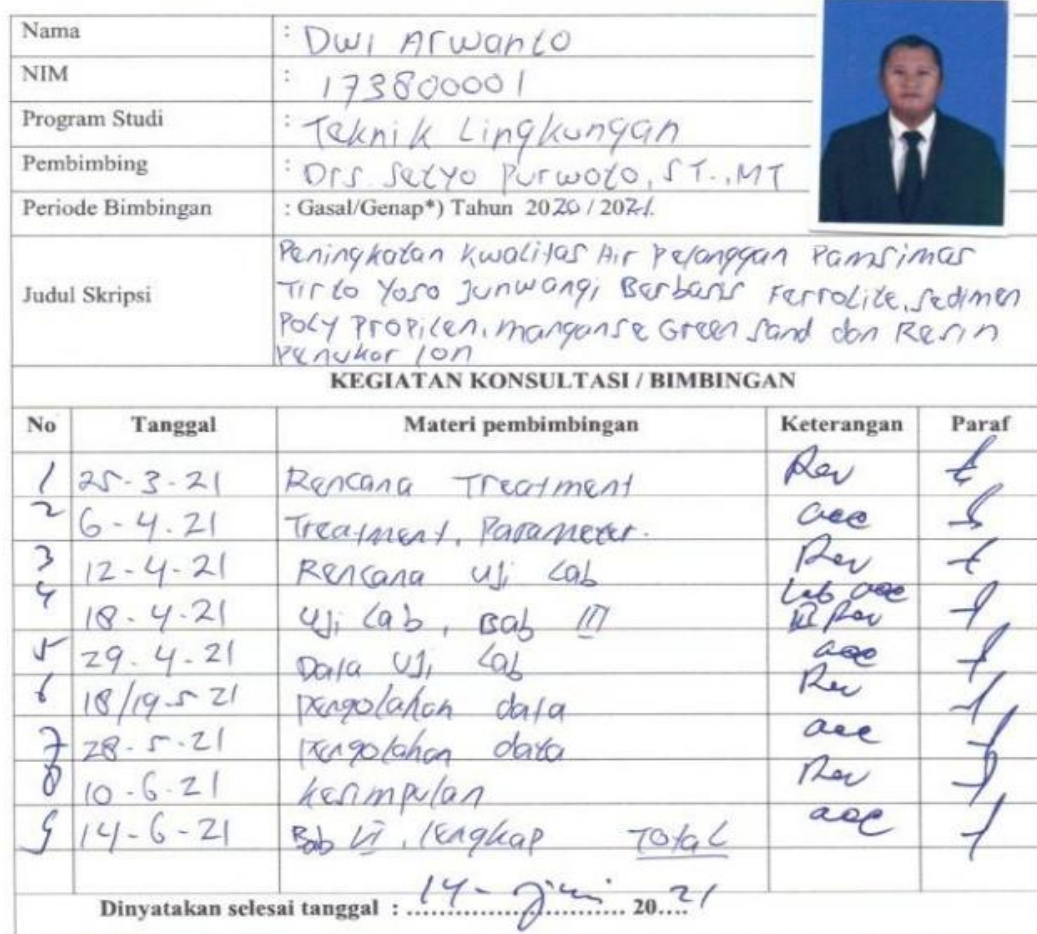 Nama : Dwi Arwanto
NIM : 173800001
Program Studi : Teknik Lingkungan
Pembimbing : Drs. Setyo Purwoto, ST.,MT
Periode Bimbingan : Gasal/Genap*) Tahun 2020 / 2021.
Judul Skripsi
Peningkatan Kwalitas Air Pelanggan Pamsimas
Tirto Yoso Junwangi Berbasis Ferrolite, Sedimen
Poly Propilen, manganse Green sand dan Resin
Penukar Ion
KEGIATAN KONSULTASI / BIMBINGAN
No Tanggal Materi pembimbingan Keterangan Paraf
1 25-3-21 Rencana Treatment Rev
2 6-4-21 Treatment, Parameter. acc
3 12-4-21 Rencana uji Lab Rev
4 18-4-21 Uji Lab, Bab III Lab acc III Rev
5 29-4-21 Data Uji Lab acc
6 18/19-5 21 pengolahan data Rev
7 28-5-21 pengolahan data acc
8 10-6-21 kesimpulan Rev
9 14-6-21 Bab VI, lengkap Total acc
Dinyatakan selesai tanggal : 14 - Juni 20 21